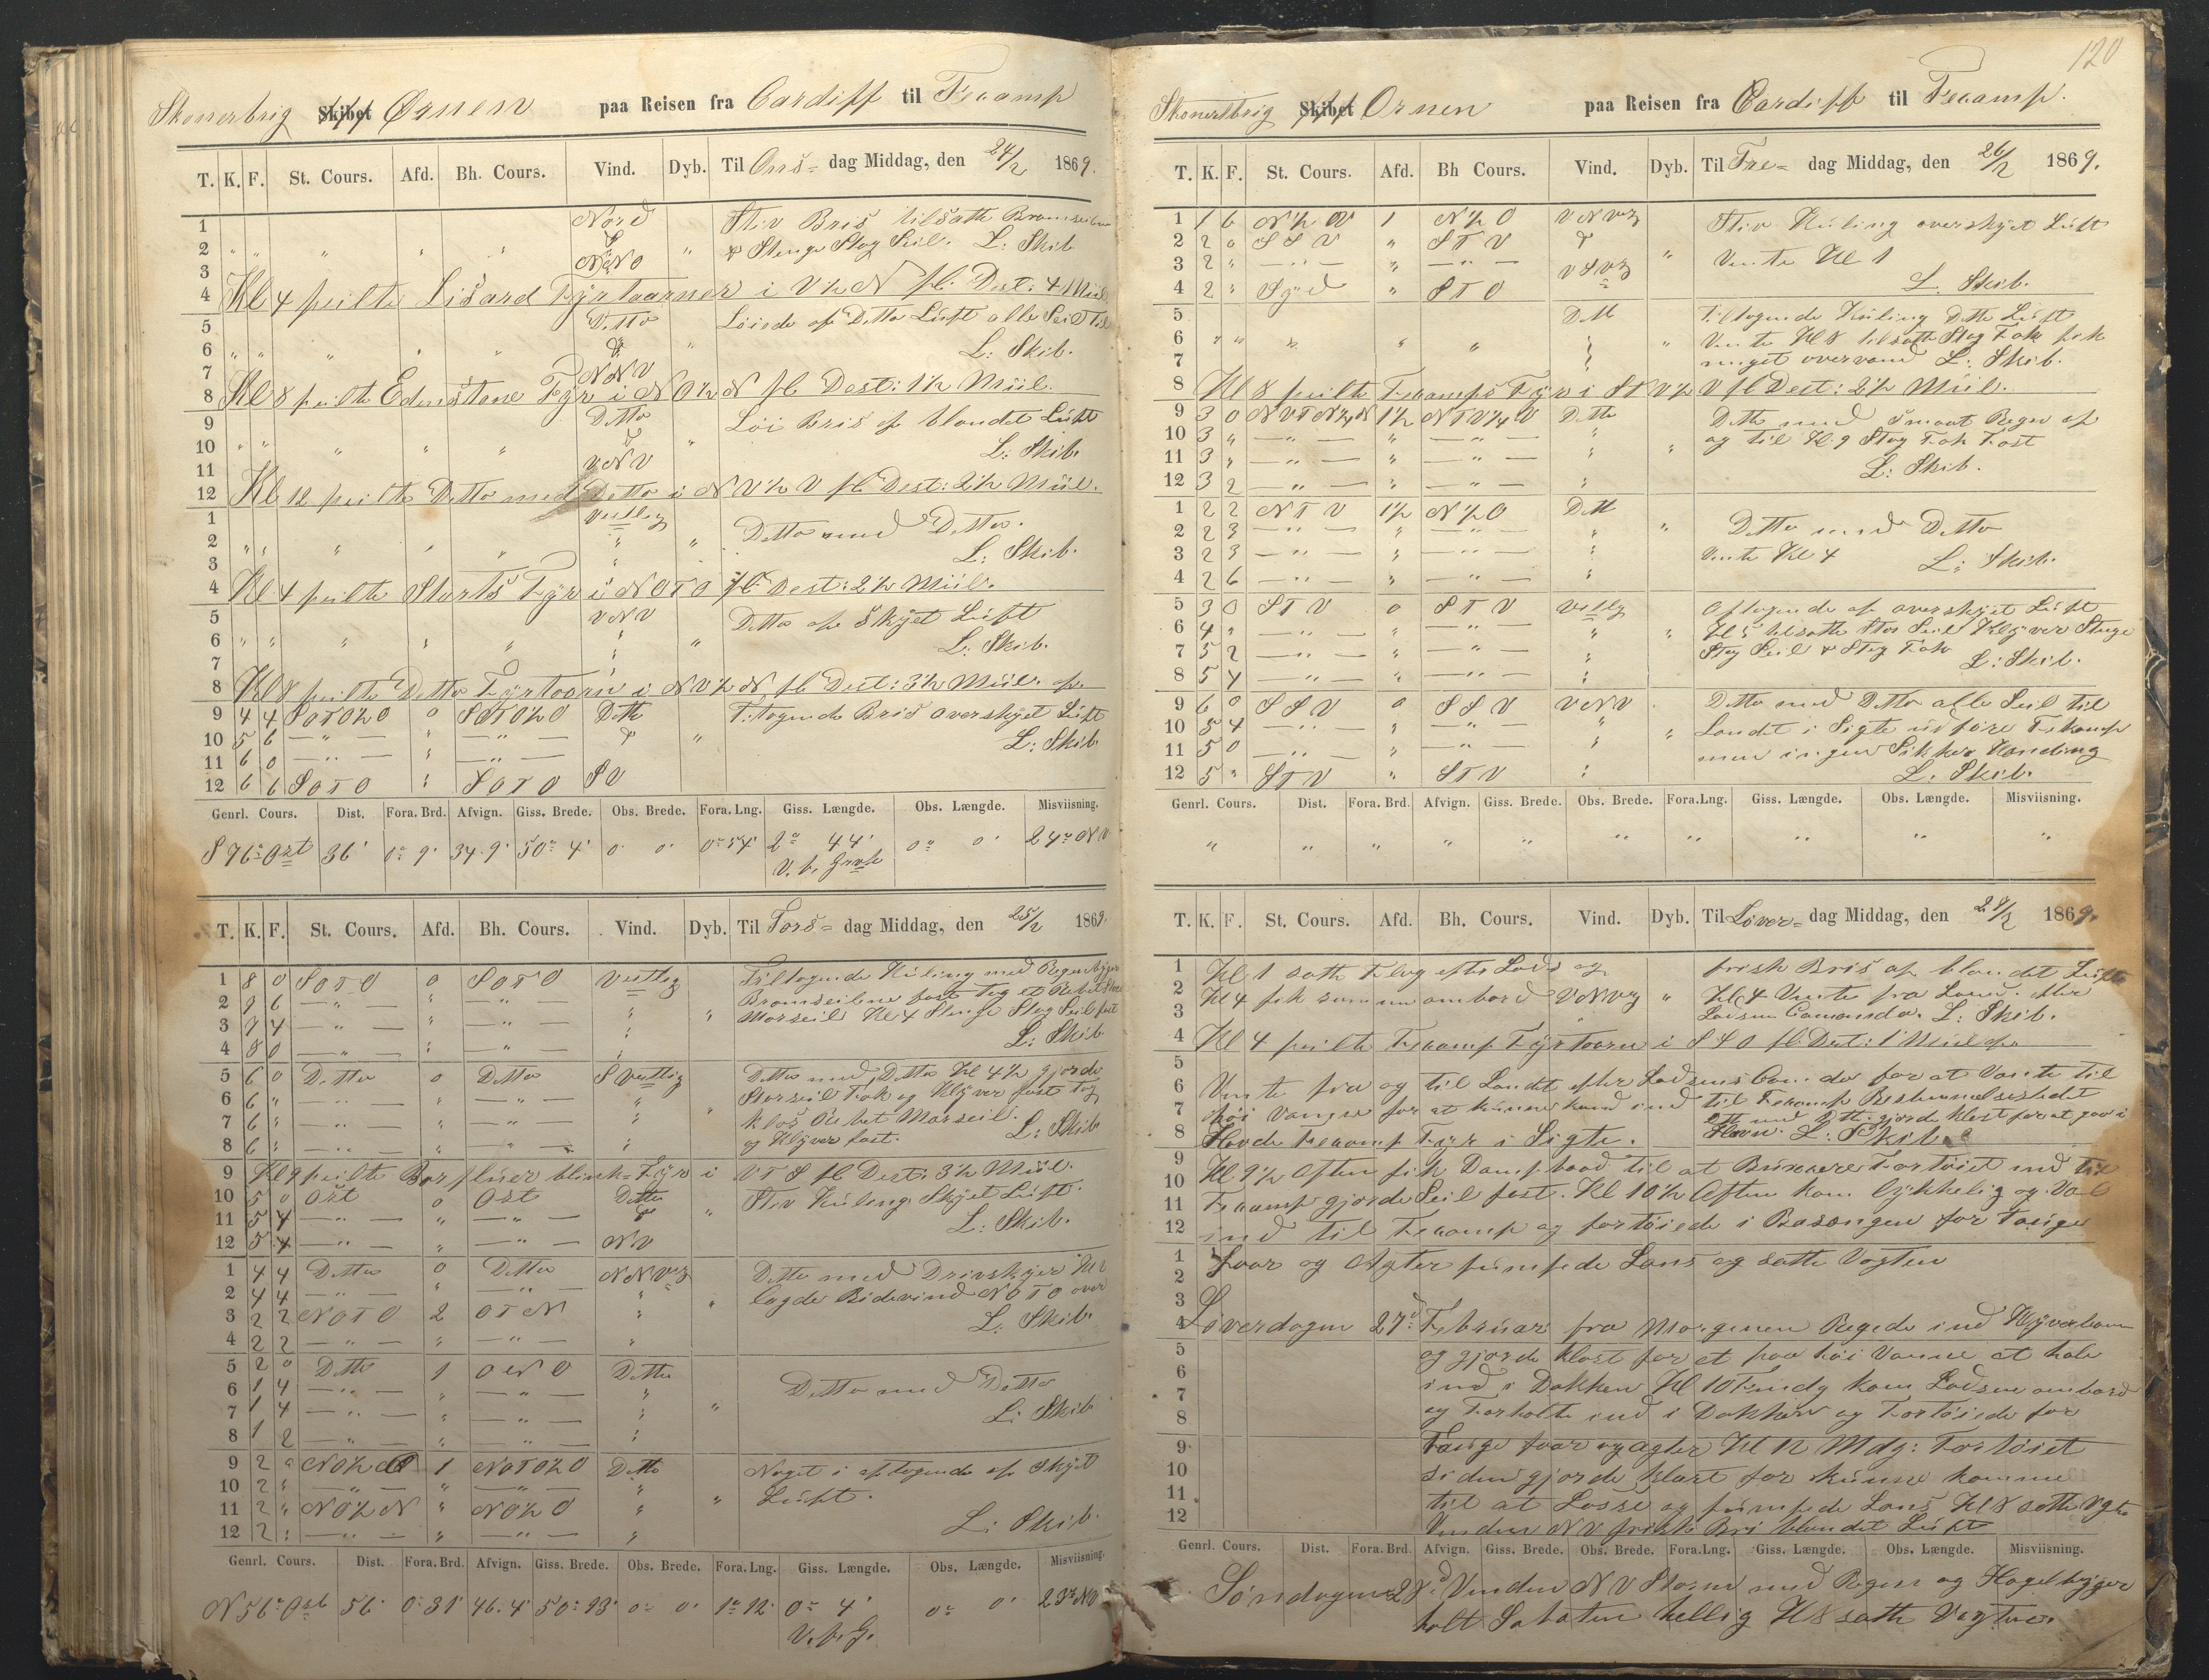 Skonerbrig Skibet Ørnen paa Reisen fra Cardiff til Fecamp
T. K. F. St. Cours. Afd. Bh. Cours. Vind. Dyb. Til Ons= dag Middag, den 24/2 1869.
1 Nord Stiv Bris tilsatte Bramseilene
2 " " " " " & " & Stenge Stag Seil. L: Skib
3 NNO
4 Kl 4 peilte Lisard Fyrtaarner i V½N pC. Dest: 4 Miil
5 Ditto Løiede af Ditto Luft alle Seil Til
6 " " " " & " L: Skib.
7 NNV
8 Kl 8 peilte Edenstone Fyr i NO½N pC Dest: 1½ Miil.
9 Ditto Løi Bris af blandet Luft
10 " " " " " & " L: Skib.
11 VNV
12 Kl 12 peilte Ditto med Ditto i NV½V pC Dest: 2½ Miil.
1 Vestlig Ditto med Ditto.
2 " " " " " " " L: Skib.
3 "
4 Kl 4 peilte Starts Fyr i NOTO pC Dest: 2½ Miil.
5 VNV Ditto af Skyet Luft
6 " " " " " " " L: Skib.
7 "
8 Kl 8 peilte Ditto Fyrtaarn i NV½N pC Dest: 3½ Miil. af.
9 4 4 SOTO½O 0 SOTO½O Ditto Tiltagende Bris overskyet Luft
10 5 6 — " — " — " — & " L: Skib.
11 6 0 — " — " — " —
12 6 6 SOTO " SOTO SV
Genrl. Cours. Dist. Fora. Brd. Afvign. Giss. Brede. Obs. Brede. Fora. Lng. Giss. Længde. Obs. Længde. Misviisning.
S 76° Ost 36' 0° 9' 34.9' 50° 4' 0° 0' 0° 54' 2° 44' 0° 0' 24° NV
V. f. Grvh
T. K. F. St. Cours. Afd. Bh. Cours. Vind. Dyb. Til Tors= dag Middag, den 25/2 1869.
1 8 0 SOTO 0 SOTO Vestlig Tiltagende Kuling med Regenbyger
2 9 6 — " — " — " — " Bramseilene fast Tog et Rebet Store
3 7 4 — " — " — " — " " Morseil Kl 4 Stenge Stag Seil fast
4 8 0 — " — " — " — " L: Skib
5 6 0 Ditto 0 Ditto SVestlig Ditto med Ditto Kl 4½ gjorde
6 6 " — " — " — " — " Storseil Fok og Klyver fast Tog
7 6 " — " — " — " — " " klos Rebet Morseil.
8 6 " — " — " — " — " og Klyver fast. L: Skib
9 Kl 9 peilte Barfluer blink=Fyr i VTS pC Dest: 3½ Miil.
10 5 0 Ost 0 Ost Ditto Stiv Kuling Skyet Luft.
11 5 4 — " — " — " — & " L: Skib.
12 5 4 — " — " — " — NV
1 4 4 Ditto 0 Ditto NNVlig Ditto med Drivskyer Kl 2
2 4 4 — " — " — " — " lagde Bidevind NOTO over
3 2 2 NOTO 2 OTN " " L: Skib.
4 2 2 — " — " — " — "
5 2 0 Ditto 1 ONO Ditto
6 1 4 — " — " — " — " Ditto med Ditto
7 1 4 — " — " — " — " " L: Skib
8 1 2 — " — " — " — "
9 2 0 NO½O 1 NOTO½O Ditto Noget i aftagende af Skyet
10 2 " — " — " — " — " Luft.
11 2 " NO½N " NO½O " "
12 2 " — " — " — " — " L: Skib.
Genrl. Cours. Dist. Fora. Brd. Afvign. Giss. Brede. Obs. Brede. Fora. Lng. Giss. Længde. Obs. Længde. Misviisning.
N 56° Ost 56' 0° 31' 46.4' 50° 13' 0° 0' 1° 12' 0° 4' 0° 0' 23° NV
V. f. G.
120
Skonertbrig Skibet Ørnen paa Reisen fra Cardiff til Fecamp.
T. K. F. St. Cours. Afd. Bh Cours. Vind. Dyb. Til Fre= dag Middag, den 26/2 1869.
1 1 6 N½V 1 N½O VNVlig Stiv Kuling overskyet Luft
2 2 0 SSV " STV & Vente Kl 1
3 2 " — " — " — " — VSVlig "
4 2 " Syd " STO L. Skib.
5 Ditt Tiltagende Kuling Ditto Luft
6 " " " " " " " Vente Kl 8 tilsatte Stag Fok fik
7 noget overvand L: Skib.
8 Kl 8 peilte Fecamps Fyr i STV½V pC Dest: 2½ Miil.
9 3 0 NVTN¾N 1½ NTV¼V Ditto Ditto med Smaat Regn af
10 3 " — " — " — " — " og til Kl 9 Stag Fok Fast
11 3 " — " — " — " — " " L: Skib.
12 3 2 — " — " — " — "
1 2 2 NTV 1½ N½O Ditt
2 2 3 — " — " — " — " " Ditto med Ditto
3 2 3 — " — " — " — " Vente Kl 4 L: Skib.
4 2 6 — " — " — " — "
5 3 0 STV 0 STV Vestlig Aftagende af overskyet Luft
6 4 " — " — " — " — " " Kl 5 tilsatte Stor Seil Klyver Stenge
7 5 2 — " — " — " — " Stag Seil & Stag Fok L: Skib.
8 5 4 — " — " — " — "
9 6 0 SSV 0 SSV VNV Ditto med Ditto alle Seil til
10 5 4 — " — " — " — " " Landet i Sigte udføre Fekamp
11 5 0 — " — " — " — " men ingen Sikker Kanding
12 5 " STV " STV " L. Skib.
Genrl. Cours. Dist. Fora. Brd. Afvign. Giss. Brede. Obs. Brede. Fora. Lng. Giss. Længde. Obs. Længde. Misviisning.
" " " " " " " " " "
T. K. F. St. Cours. Afd. Bh. Cours. Vind. Dyb. Til Løver= dag Middag, den 27/2 1869.
1 Kl 1 satte Flag efter Lods og frisk Bris af blandet Luft
2 Kl 4 fik samme ombord VNVlig " Kl 4 Vente fra Land. efter
3 Lodsen Comando. L: Skib.
4 Kl 4 peilte Fecamp Fyrtaarn i StO pC Dest: 1 Miil af.
5
6 Vente fra og til Landt efter Lodsens Comdo for at Vente til
7 høi Vandne for at kunne komd ind til Fecamp Bestemmelsesstedet
8 Havde Fecamp Fyr i Sigte. Ditto med Ditt. gjorde klart for at gaa i Havn. L: Skib.
9 Kl 9½ Aften fik Dampbaad til at Buxsere Fartøiet ind til
10
11 Fecamp gjorde Seil fest. Kl 10½ Aften kom lykkelig og Vel
12 ind til Fecamp og fortøiede i Basongen for Tauge
1 Foar og Agter pumpede Lens og satte Vagten
2
3
4 Løverdagen 27d: Februar fra Morgenen Regede ind Klyverbom
5 og gjorde klart for et paa høi Vanne at hale
6 ind i Dokken Kl 10 Fmdg kom Lodsne ombord
7 og Forholte ind i Dokken og Fortøiede for
8 Tauge foar og agter Kl 12 Mdg: Fortøiet
9 siden gjorde klart for kunne komme
10 til at Losse og pumpede Lens Kl 8 satte Vgtn
11 Vinden NV frisk Bri blandet Luft
12
Genrl. Cours. Dist. Fora. Brd. Afvign. Giss. Brede. Obs. Brede. Fora. Lng. Giss. Længde. Obs. Længde. Misviisning.
Søndagen 28d: Vinden NV Storm med Regen og Hagelbyger
holt Sabaten hellig Kl 8 satte Vagtne.